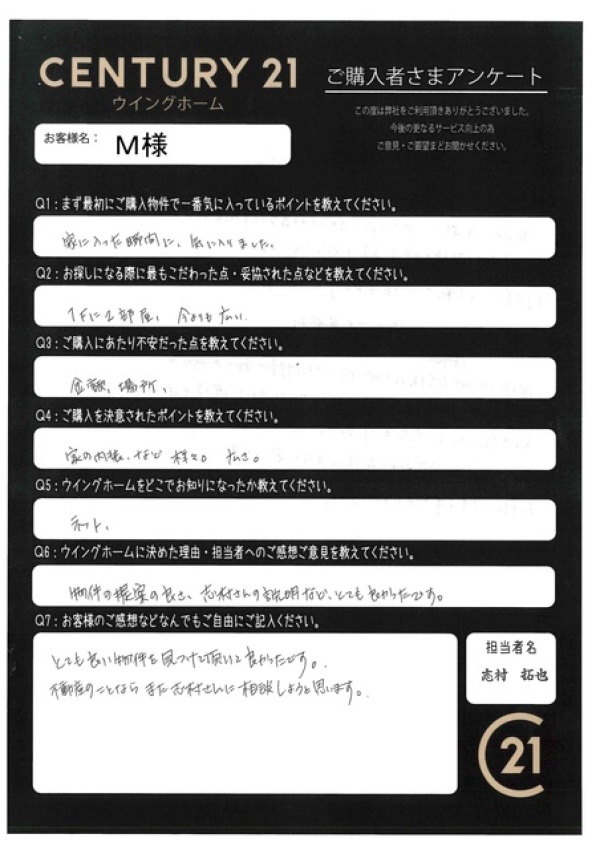 CENTURY 21
ウイングホーム
ご購入者さまアンケート
この度は弊社をご利用頂きありがとうございました。
今後の更なるサービス向上の為
ご意見・ご要望をお聞かせください。
お客様名: M様
Q1:まず最初にご購入物件で一番気に入っているポイントを教えてください。
家に入った瞬間に、気に入りました。
Q2:お探しになる際に最もこだわった点・妥協された点などを教えてください。
1Fに2部屋、今よりも広い
Q3:ご購入にあたり不安だった点を教えてください。
金額、場所、
Q4:ご購入を決意されたポイントを教えてください。
家の内装、など 広さ。
Q5:ウイングホームをどこでお知りになったか教えてください。
ネット、
Q6:ウイングホームに決めた理由・担当者へのご感想ご意見を教えてください。
物件の提案の良さ、志村さんの説明など、とても良かったです。
Q7:お客様のご感想などなんでもご自由にご記入ください。
とても良い物件を見つけて頂いて良かったです。
不動産のことなら また志村さんに相談しようと思います。
担当者名
志村 拓也
C21